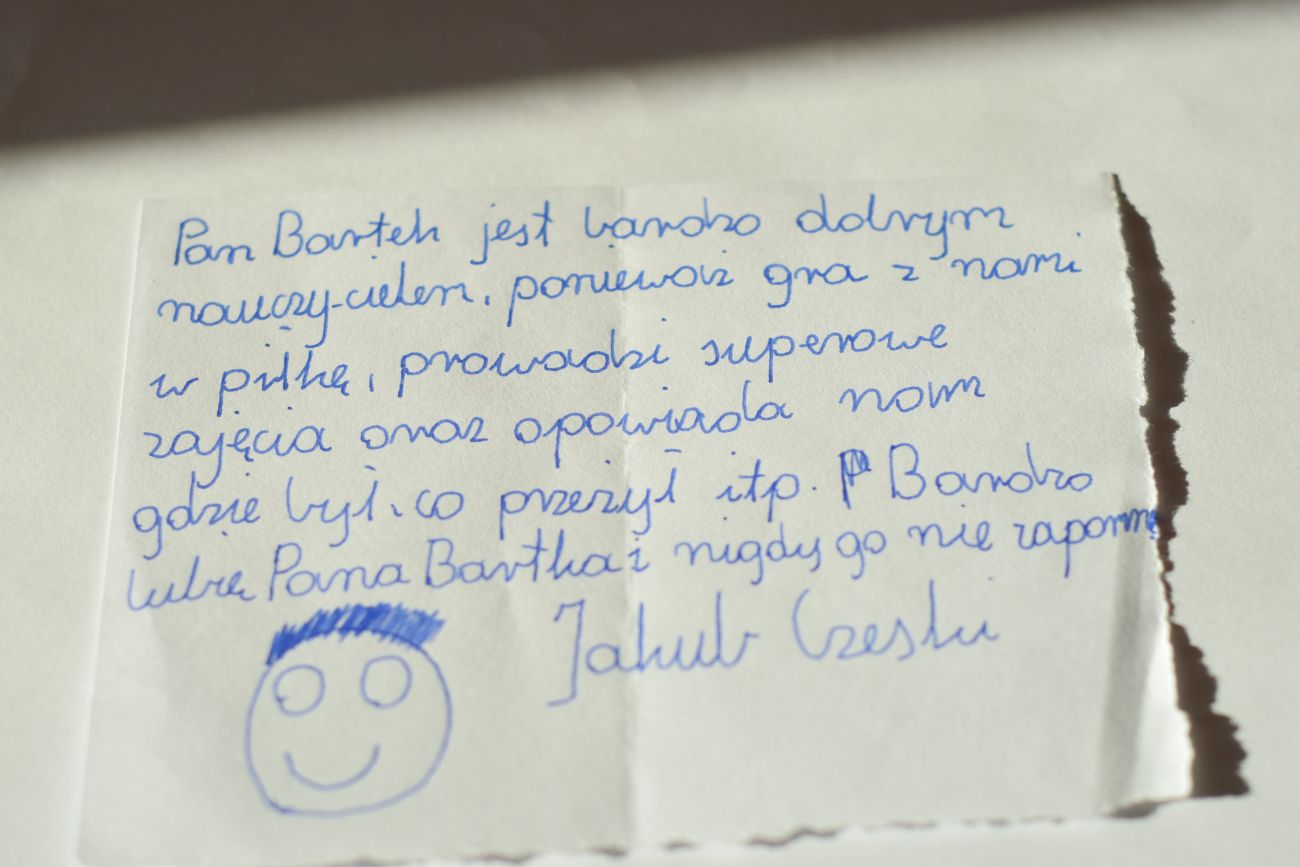 Pan Bartek jest bardzo dobrym
nauczy-cielem, ponieważ gra z nami
w piłkę, prowadzi superowe
zajęcia oraz opowiada nam
gdzie był, co przeżył itp. Bardzo
lubię Pana Bartka i nigdy go nie zapomnę
Jakub Czeski